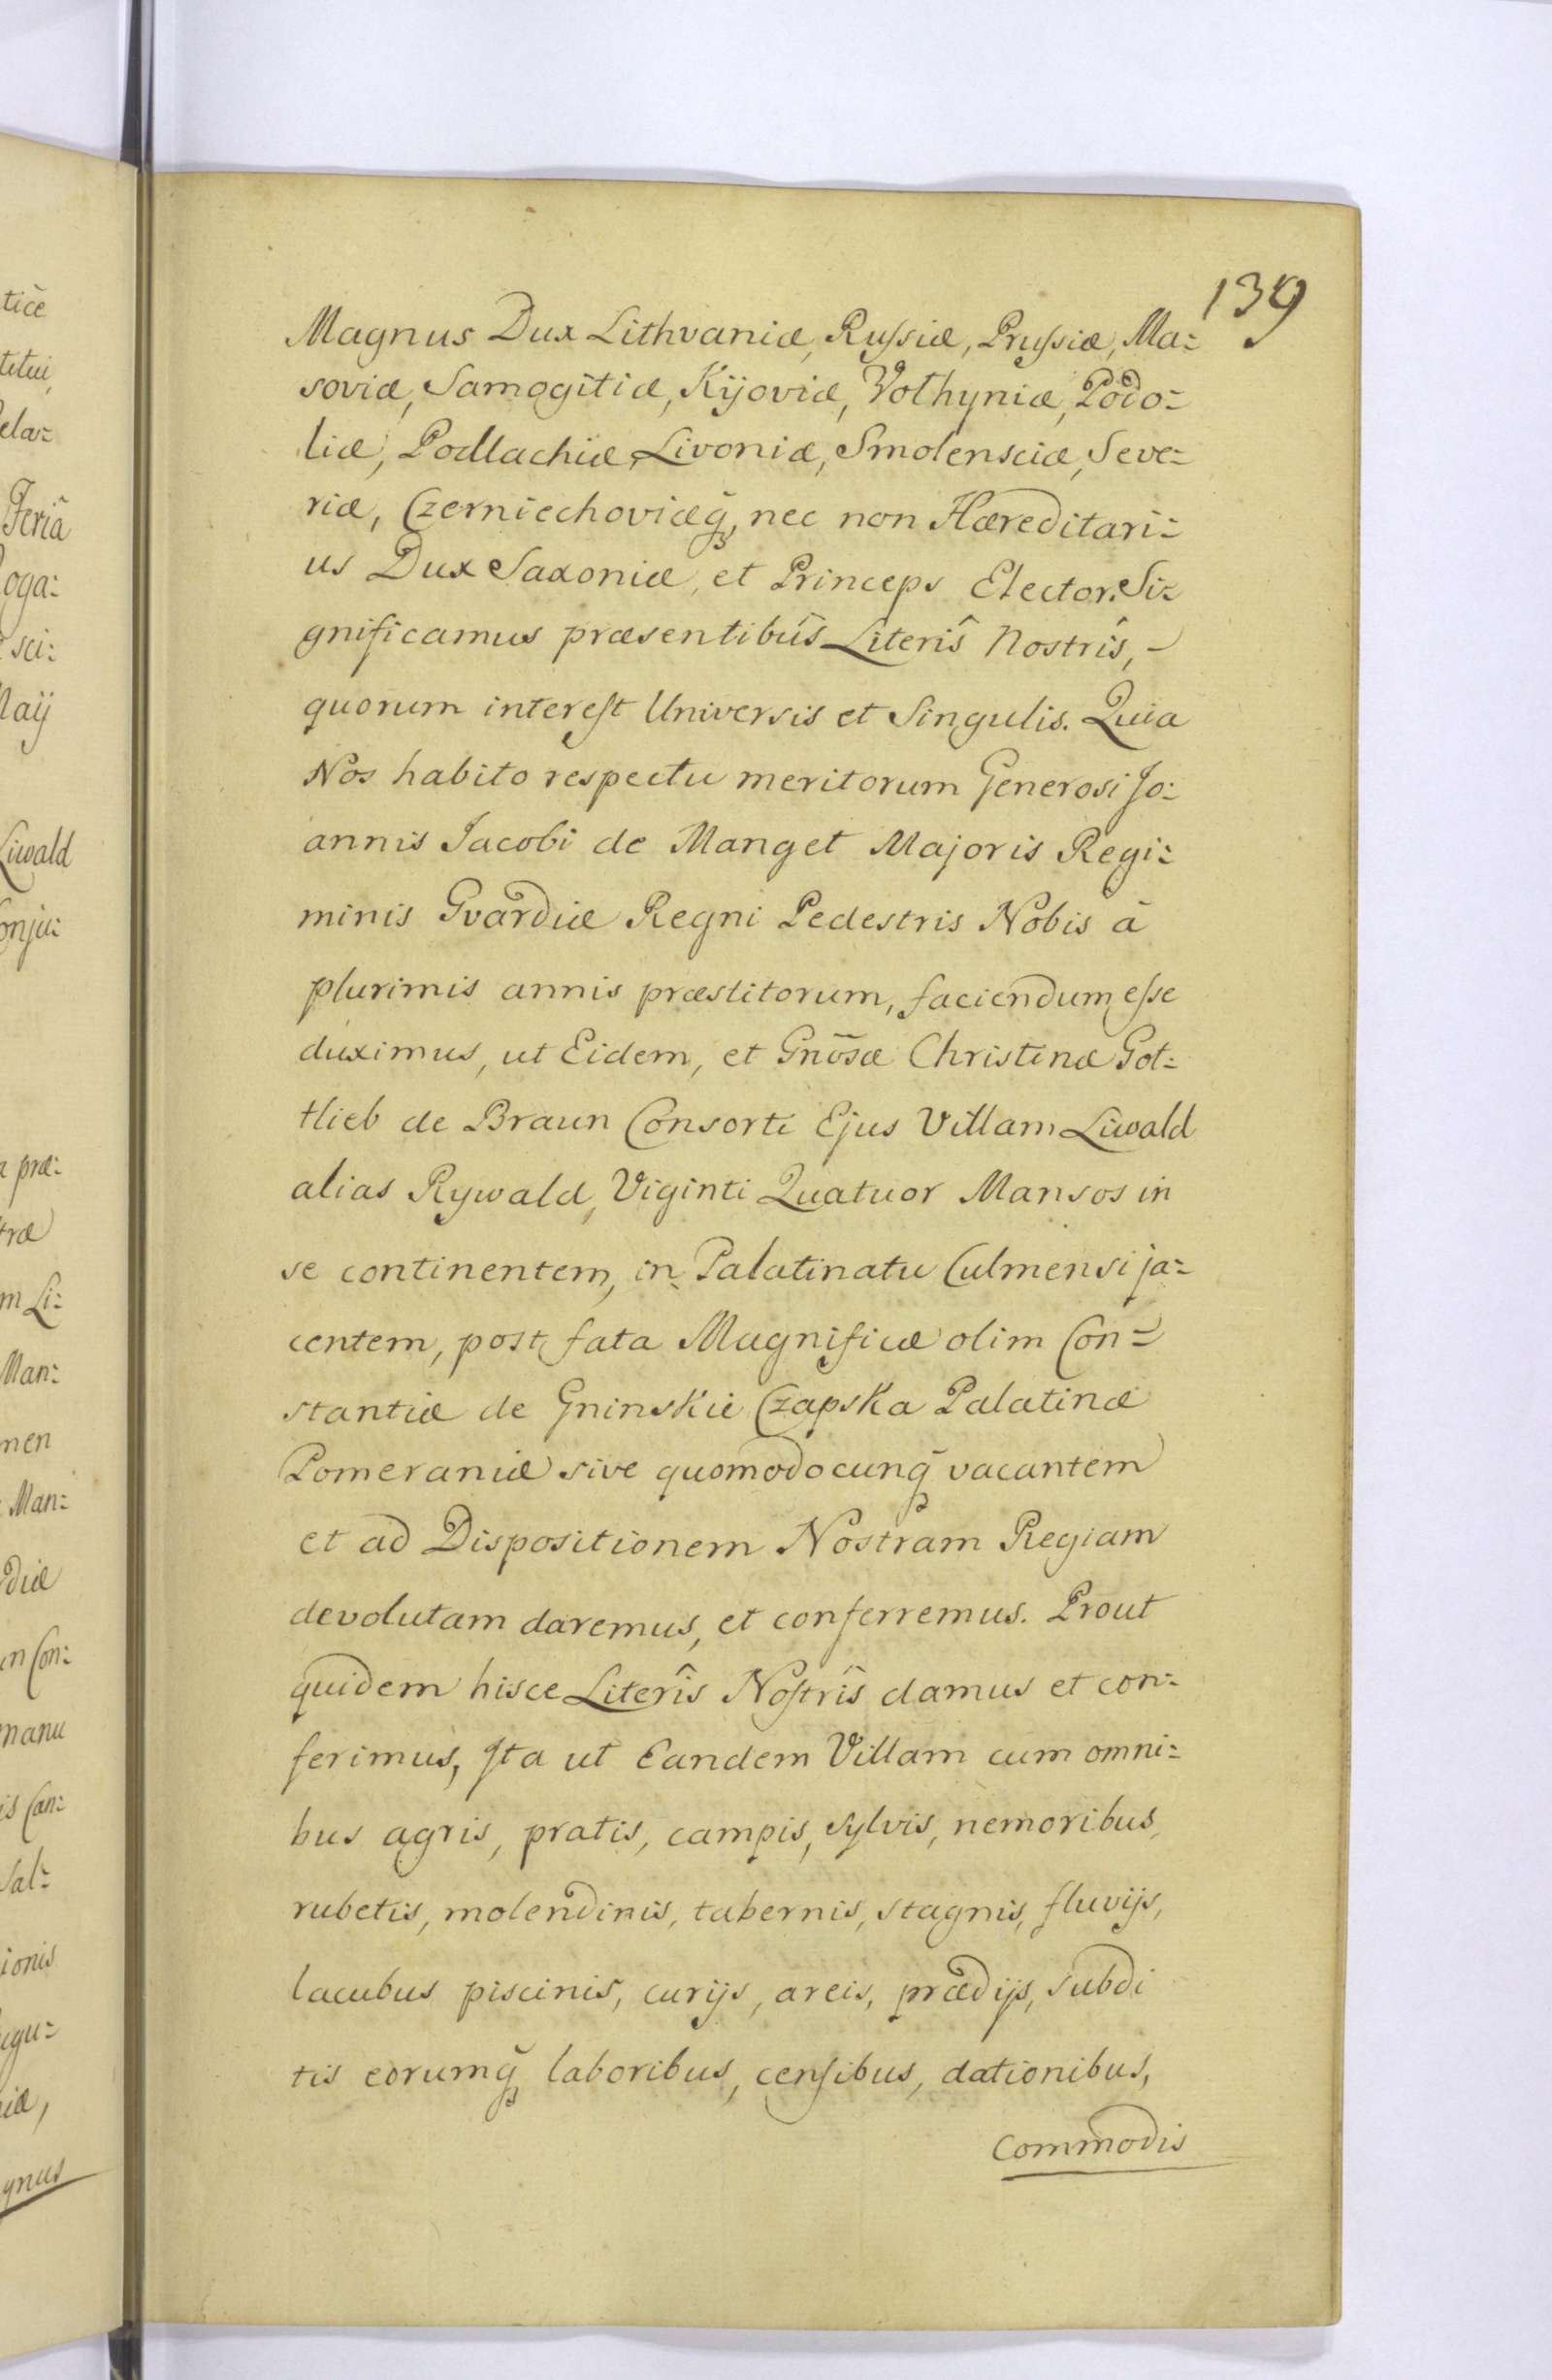 139
Magnus Dux Lithvaniæ, Russiæ, Prussiæ, Ma=
soviæ, Samogitiæ, Kijoviæ, Volhyniæ, Podo=
liæ, Podlachiæ, Livoniæ, Smolensciæ, Seve=
riæ, Czerniechoviæq̃, nec non Hæreditari=
us Dux Saxoniæ, et Princeps Elector. Si=
gnificamus præsentibûs Literîs Nostrîs,
quorum interest Universis et Singulis. Quia
Nos habito respectu meritorum Generosi Jo=
annis Jacobi de Manget Majoris Regi=
minis Gvardiæ Regni Pedestris Nobis à
plurimis annis præstitorum, faciendum esse
duximus, ut Eidem, et Gnõsæ Christinæ Got=
tlieb de Braun Consorti Ejus Villam Liwald
alias Rywald, Viginti Quatuor Mansos in
se continentem, in Palatinatu Culmensi ja=
centem, post fata Magnificæ olim Con=
stantiæ de Gninskie Czapska Palatinæ
Pomeraniæ sive quomodocunq̃ vacantem
et ad Dispositionem Nostram Regiam
devolutam daremus, et conferremus. Prout
quidem hisce Literîs Nostrîs damus et con=
ferimus, Ita ut Eandem Villam cum omni=
bus agris, pratis, campis, sylvis, nemoribus,
rubetis, molendinis, tabernis, stagnis, fluvijs,
lacubus piscinis, curijs, areis, prædijs, subdi
tis eorumq̃ laboribus, censibus, dationibus,
Commodis
tiæ
titui,
ela=
Feriâ
oga=
sci=
Maij
Liwald
onju=
præ=
træ
m Li=
Man=
men
Man=
diæ
in Con=
manu
is Can=
Sal=
ionis
egu=
iæ,
gnus